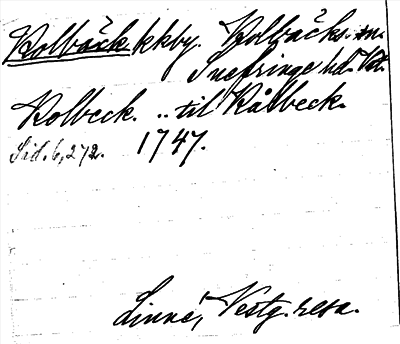 Kolbäck kkby. Kolbäcks sn.
Snefringe hd. Vtl.
Kolbeck. .. til Kålbeck.
Sid. 6, 272. 1747.
Linné, Vestg. resa.